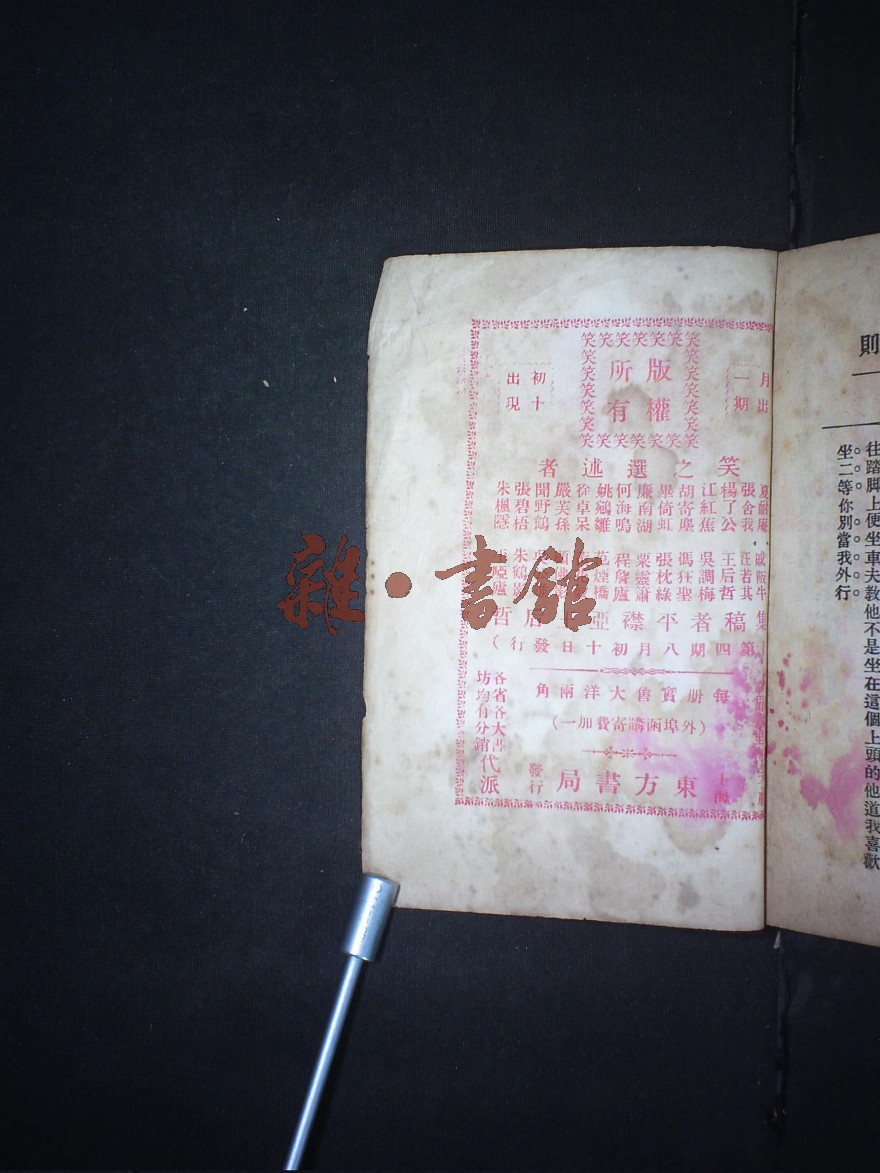 月出
一期
版權
所有
笑笑笑笑笑笑笑
初十
出現
笑之選述者
夏耐庵
張舍我
楊了公
江紅蕉
胡寄塵
畢倚虹
廉南湖
何海鳴
姚鵷雛
徐卓呆
嚴芙孫
聞野鶴
張碧梧
朱楓隱
戚飯牛
汪若其
王后哲
吳調梅
馮狂聖
張枕綠
粟靈蕭
程瞻廬
范煙橋
集稿者平襟亞
哲
第四期八月初十日發行)
每册實售大洋兩角
(外埠函購寄費加一)
上海
東方書局
發行
各省各大書
坊均有分銷
代派
則
往踏脚上便坐車夫教他不是坐在這個上頭的他道我喜歡
坐二等你別當我外行
雜·書館